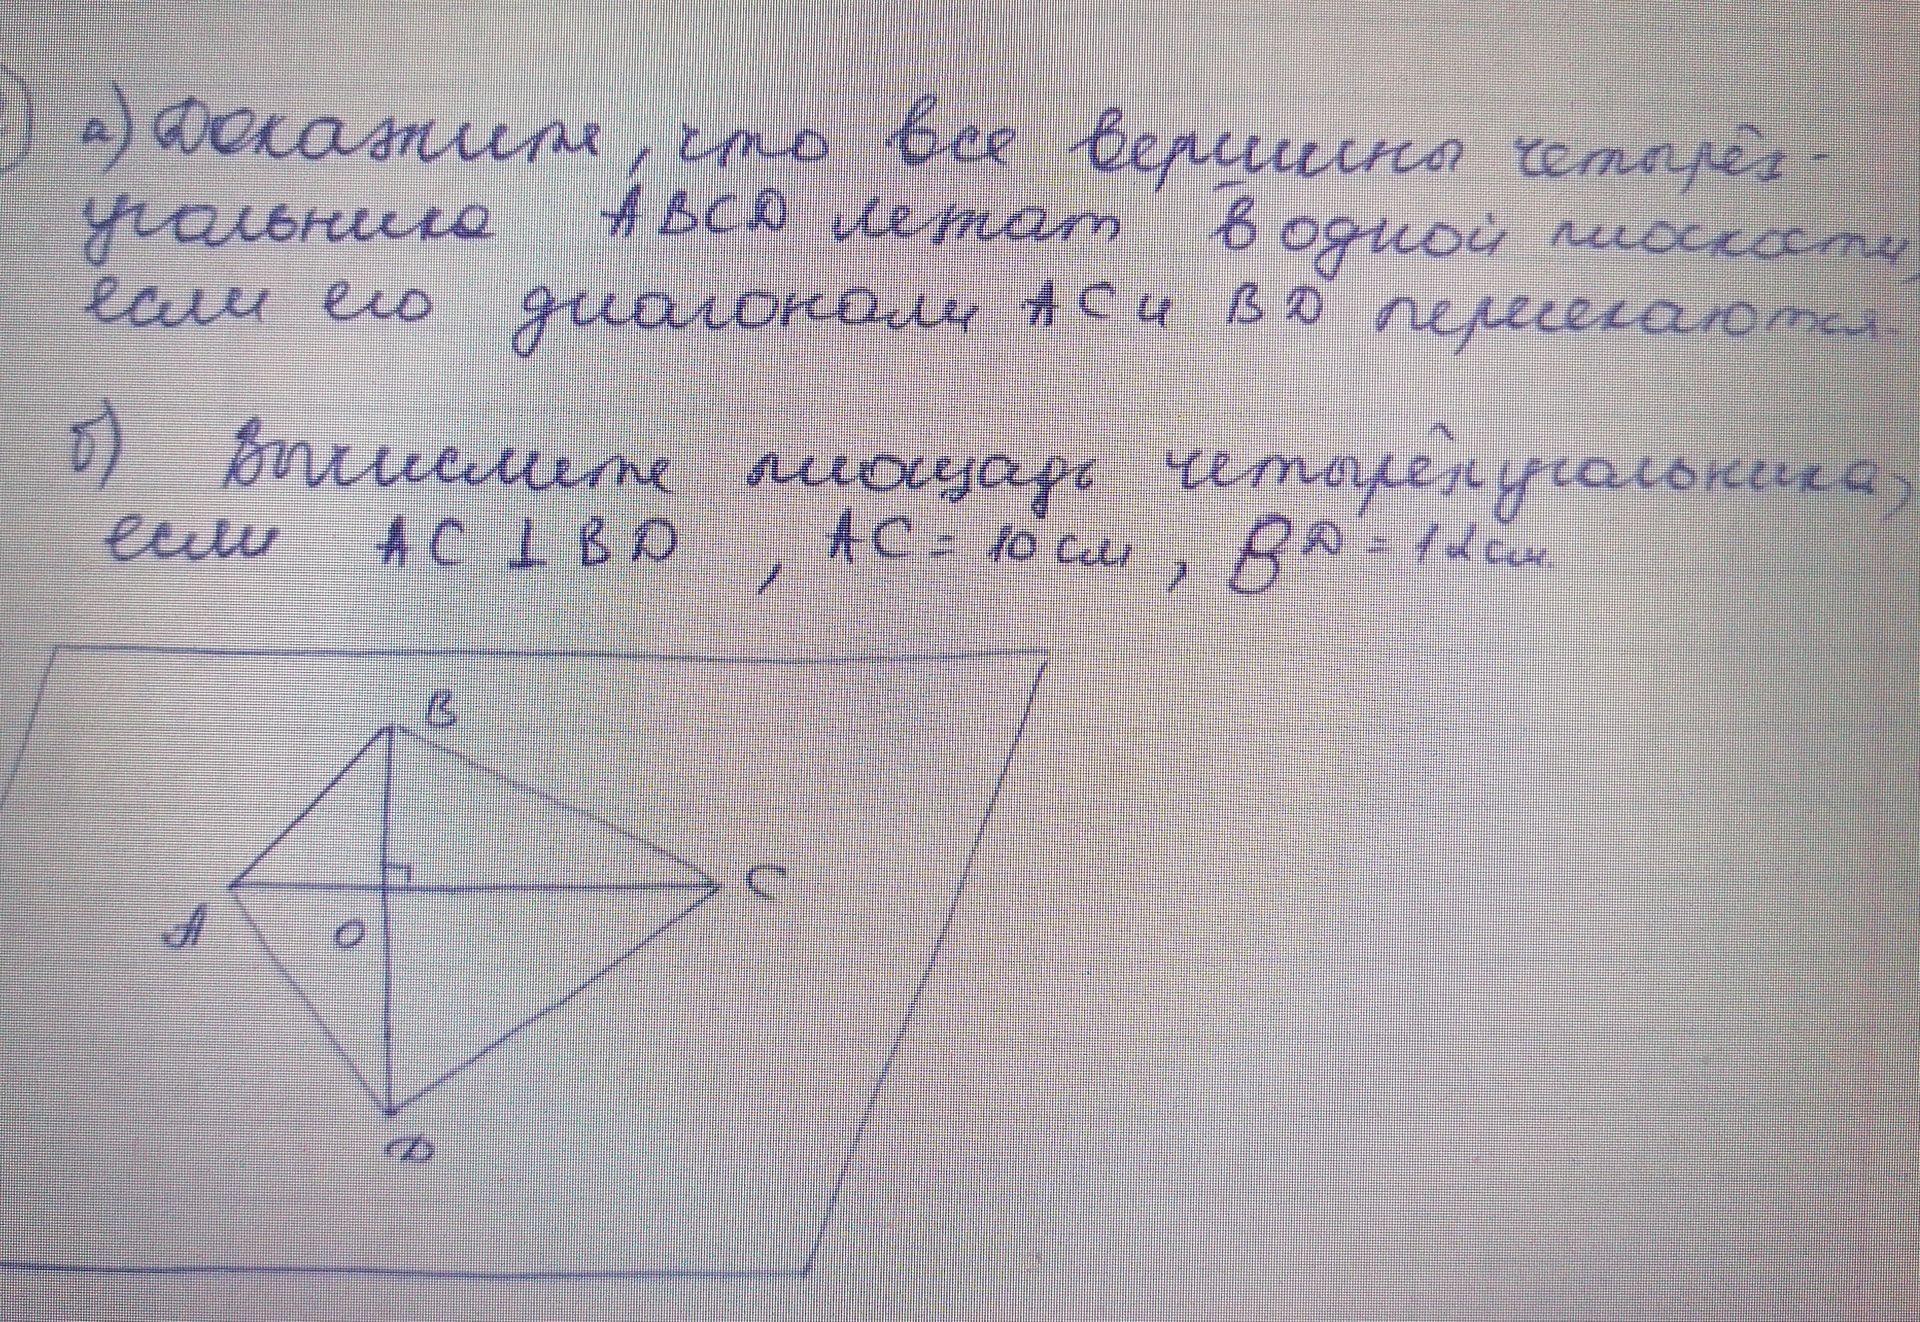 а) Докажите, что все вершины четырёх-
угольника ABCD лежат в одной плоскости,
если его диагонали AC и BD пересекаются.
б) Вычислите площадь четырёхугольника,
если AC ⊥ BD, AC = 10 см, BD = 12 см.
B
C
A
O
D